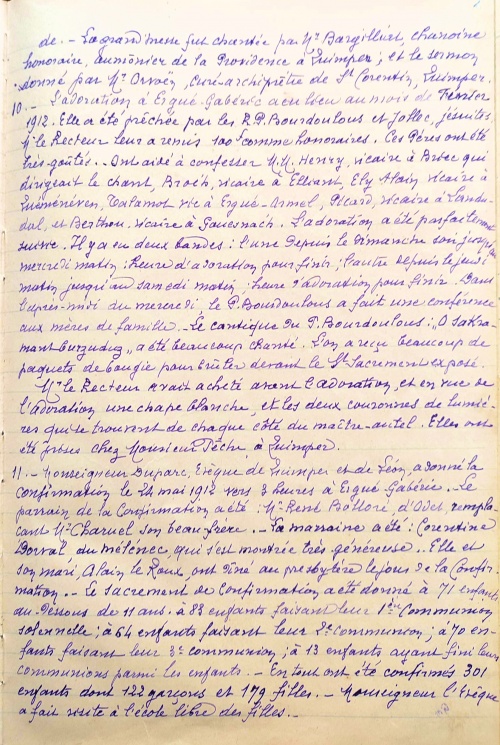 de. - La grand'messe fut chantée par Mr Bargilliat, chanoine
honoraire, aumônier de la Providence à Quimper ; et le sermon
donné par Mr Orvoën, curé-archiprêtre de St Corentin, Quimper.
10. - L'adoration à Ergué-Gabéric a eu lieu au mois de Février
1912. Elle a été prêchée par les R.P. Bourdoulous et Jolloc, jésuites.
Mr le Recteur leur a remis 100f comme honoraires. Ces Pères ont été
très-goûtés. - Ont aidé à confesser M.M. Henry, vicaire à Briec qui
dirigeait le chant, Broch, vicaire à Elliant, Ely Alain vicaire à
Guéméneven, Talamot vic à Ergué-Armel, Picard, vicaire à Landu-
dal, et Berthou vicaire à Gouesnach. L'adoration a été parfaitement
suivie. Il y a eu deux bandes : l'une depuis le Dimanche soir jusqu'au
mercredi matin ; heure d'adoration pour finir ; l'autre depuis le jeudi
matin jusqu'au samedi matin ; heure d'adoration pour finir. Dans
l'après-midi du mercredi le P. Bourdoulous a fait une conférence
aux mères de famille. - Le cantique du P. Bourdoulous : "O Sakra-
mant burzudus" a été beaucoup chanté. L'on a reçu beaucoup de
paquets de bougie pour brûler devant le St Sacrement exposé.
Mr le Recteur avait acheté avant l'adoration, et en vue de
l'adoration une chape blanche, et les deux couronnes de lumiè-
res qui se trouvent de chaque côté du maître-autel. Elles ont
été prises chez Monsieur Pêche, à Quimper.
11. - Monseigneur Duparc, Evêque de Quimper et de Léon, a donné la
confirmation le 24 mai 1912 vers 3 heures à Ergué-Gabéric. Le
parrain de la Confirmation a été : Mr René Bolloré, d'Odet, rempla-
çant Mr Charuel son beau-frère. - La marraine a été : Corentine
Dorval du Mélenec, qui s'est montrée très généreuse. Elle et
son mari, Alain le Roux, ont dîné au presbytère le jour de la Confir-
mation. - Le sacrement de Confirmation a été donné à 71 enfants
au-dessous de 11 ans ; à 83 enfants faisant leur 1ère Communion
solennelle ; à 64 enfants faisant leur 2e Communion ; à 70 en-
fants faisant leur 3e communion ; à 13 enfants ayant fini leurs
communions parmi les enfants. - En tout ont été confirmés 301
enfants dont 122 garçons et 179 filles. - Monseigneur l'Evêque
a fait visite à l'école libre des filles. -